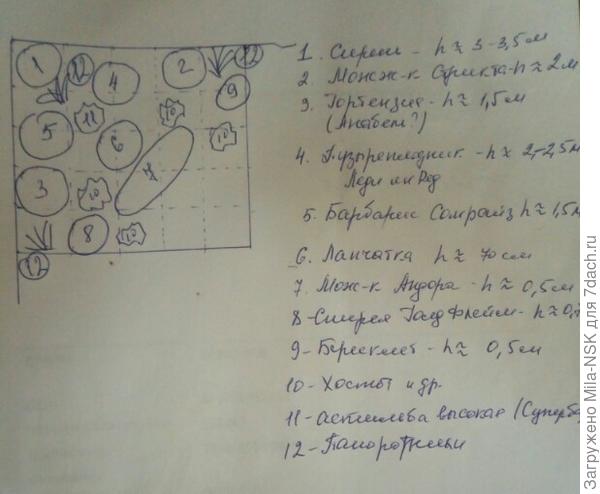 1
12
4
2
12
9
11
5
10
10
6
7
3
10
8
10
12
1. Сирень - h ≈ 3-3,5 м
2. Можж-к Стрикта - h ≈ 2 м
3. Гортензия - h ≈ 1,5 м
(Анабель?)
4. Пузыреплодник - h ≈ 2-2,5 м
Леди ин Ред
5. Барбарис Сонрайз h ≈ 1,5 м
6. Лапчатка h ≈ 70 см
7. Мож-к Андора - h ≈ 0,5 м
8 - Спирея Голдфлейм - h ≈ 0,
9 - Бересклет - h ≈ 0,5 м
10 - Хосты и др.
11 - астильба высокая (Супербa
12 - Папоротники
Загружено Mila-NSK для 7dach.ru